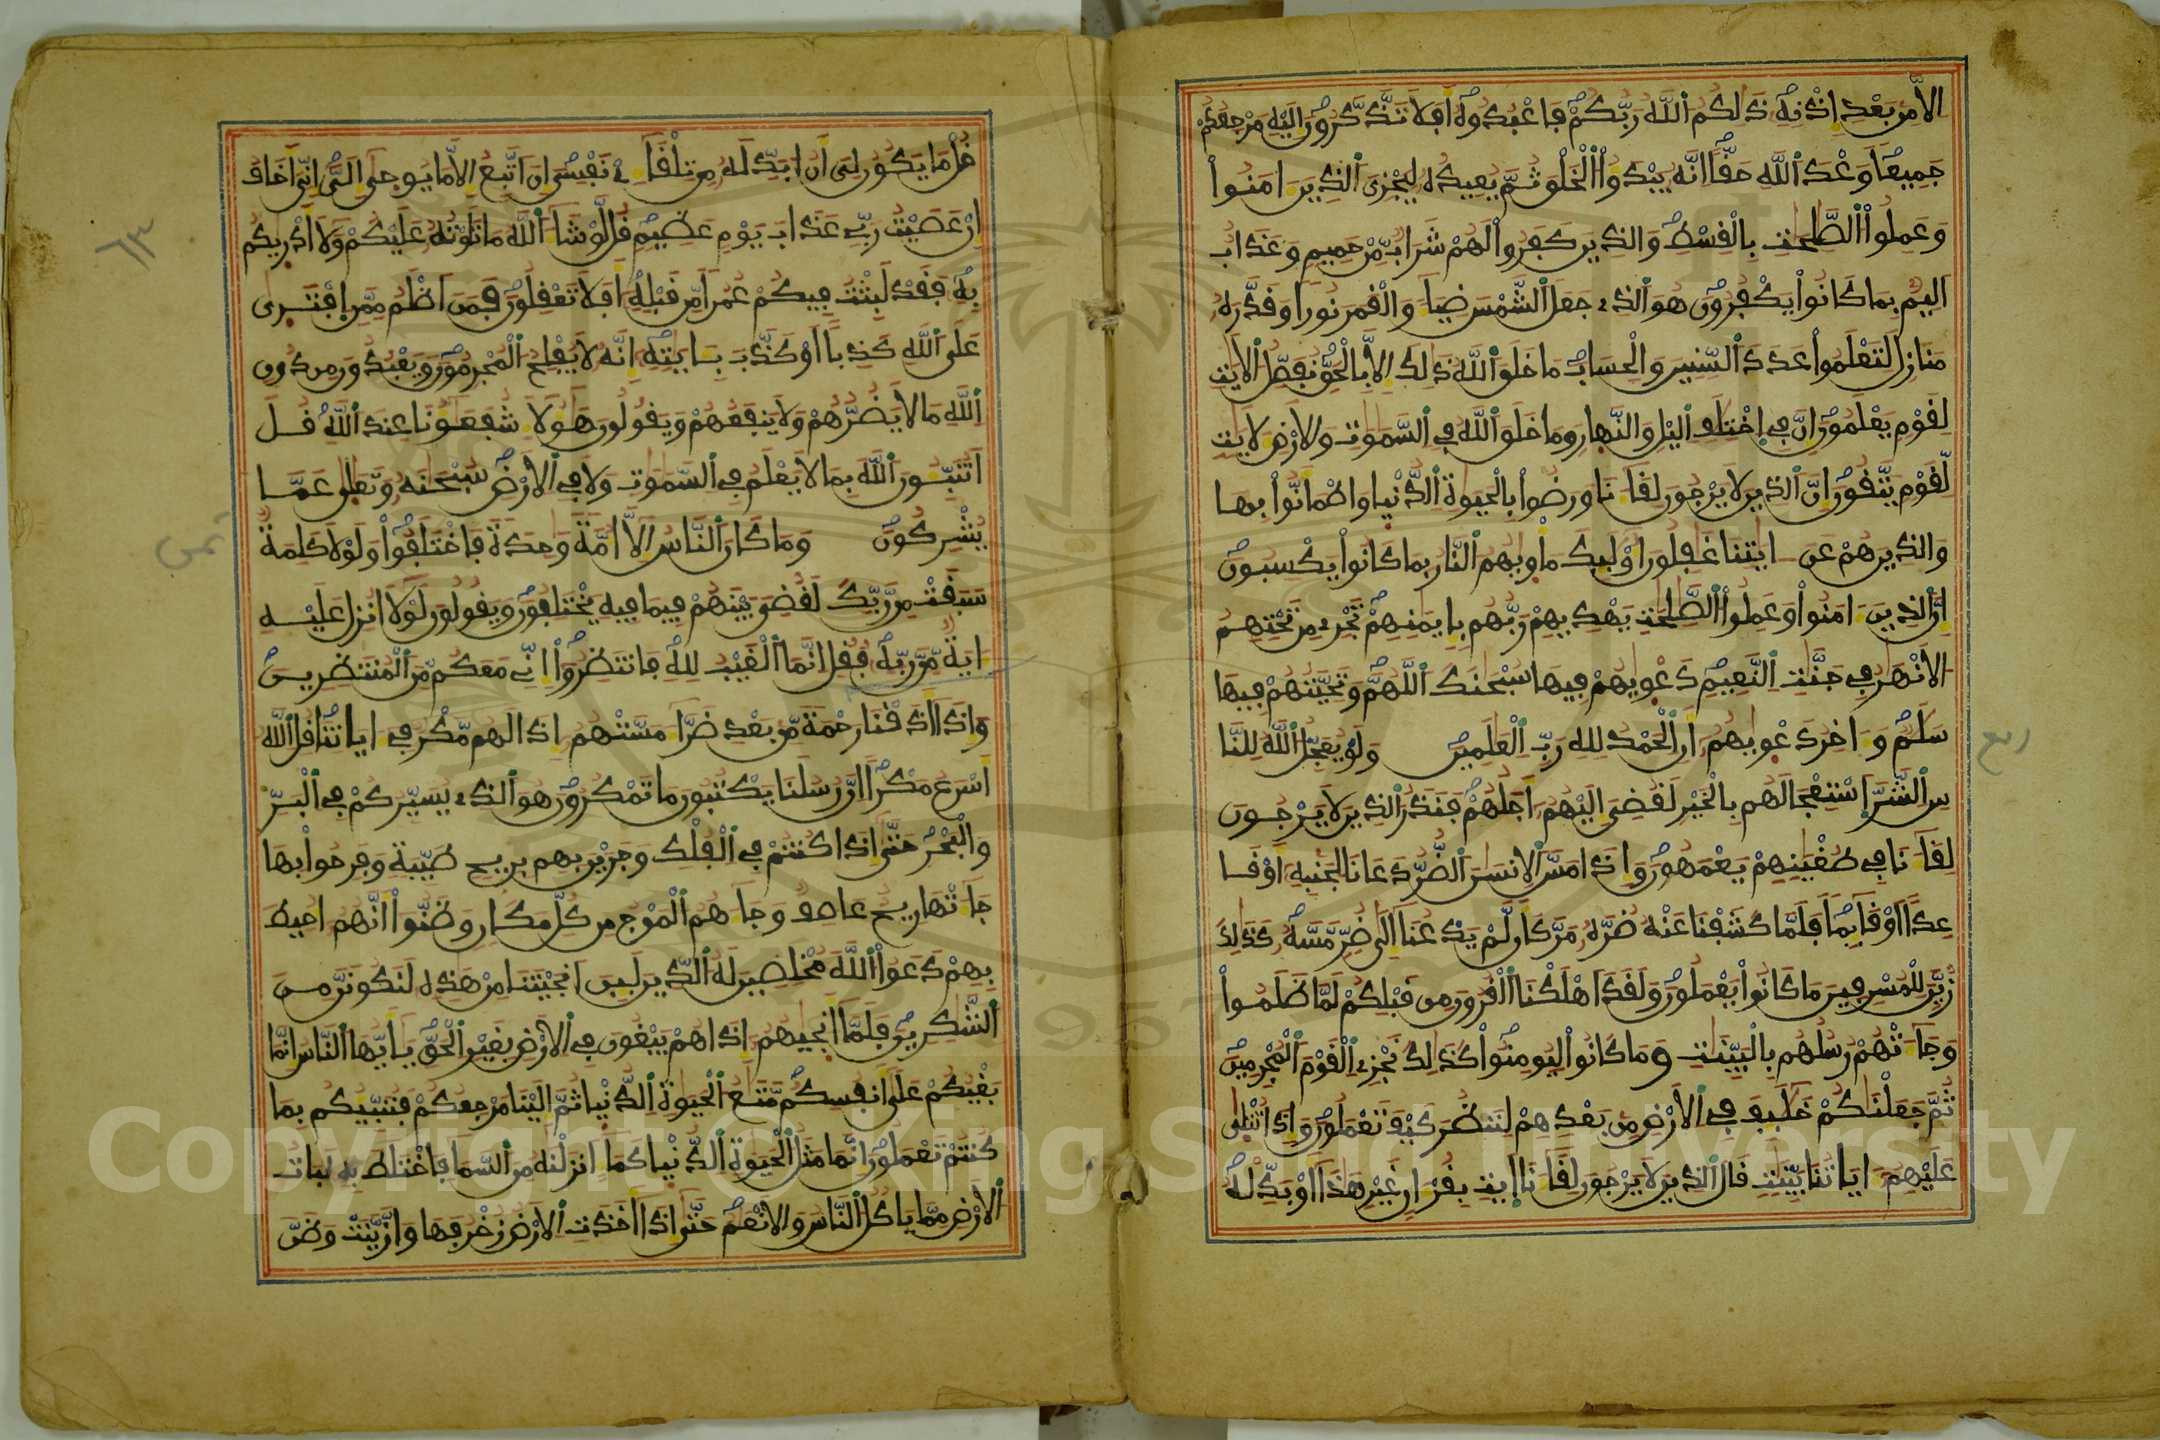 الا من بعد اذنه ذلكم الله ربكم فاعبدوه افلا تذكرون اليه مرجعكم
جميعا وعد الله حقا انه يبدؤا الخلق ثم يعيده ليجزى الذين امنوا
وعملوا الصلحت بالقسط والذين كفروا لهم شراب من حميم وعذاب
اليم بما كانوا يكفرون هو الذى جعل الشمس ضياء والقمر نورا وقدره
منازل لتعلموا عدد السنين والحساب ما خلق الله ذلك الا بالحق نفصل الايت
لقوم يعلمون ان فى اختلف اليل والنهار وما خلق الله فى السموت والارض لايت
لقوم يتقون ان الذين لا يرجون لقاءنا ورضوا بالحيوة الدنيا واطمانوا بها
والذين هم عن ايتنا غفلون اوليك ماويهم النار بما كانوا يكسبون
ان الذين امنوا وعملوا الصلحت يهديهم ربهم بايمنهم تجرى من تحتهم
الانهر فى جنت النعيم دعويهم فيها سبحنك اللهم وتحيتهم فيها
سلم واخر دعويهم ان الحمد لله رب العلمين ولو يعجل الله للنا
س الشر استعجالهم بالخير لقضى اليهم اجلهم فنذر الذين لا يرجون
لقاءنا فى طغينهم يعمهون واذا مس الانسن الضر دعانا لجنبه او قا
عدا او قايما فلما كشفنا عنه ضره مر كان لم يدعنا الى ضر مسه كذلك
زين للمسرفين ما كانوا يعملون ولقد اهلكنا القرون من قبلكم لما ظلموا
وجاءتهم رسلهم بالبينت وما كانوا ليومنوا كذلك نجزى القوم المجرمين
ثم جعلناكم خليف فى الارض من بعدهم لننظر كيف تعملون واذا تتلى
عليهم اياتنا بينت قال الذين لا يرجون لقاءنا ايت بقران غير هذا او بدله
ربع
قل ما يكون لى ان ابدله من تلقاءى نفسى ان اتبع الا ما يوحى الى انى اخاف
ان عصيت ربى عذاب يوم عظيم قل لو شاء الله ما تلوته عليكم ولا ادريكم
به فقد لبثت فيكم عمرا من قبله افلا تعقلون فمن اظلم ممن افترى
على الله كذبا او كذب بايته انه لا يفلح المجرمون ويعبدون من دون
الله ما لا يضرهم ولا ينفعهم ويقولون هولاء شفعونا عند الله قل
اتنبون الله بما لا يعلم فى السموت ولا فى الارض سبحنه وتعلى عما
يشركون وما كان الناس الا امة وحدة فاختلفوا ولولا كلمة
سبقت من ربك لقضى بينهم فيما فيه يختلفون ويقولون لولا انزل عليه
اية من ربه فقل انما الغيب لله فانتظروا انى معكم من المنتظرين
واذا اذقنا رحمة من بعد ضراء مستهم اذا لهم مكر فى اياتنا قل الله
اسرع مكرا ان رسلنا يكتبون ما تمكرون هو الذى يسيركم فى البر
والبحر حتى اذا كنتم فى الفلك وجرين بهم بريح طيبة وفرحوا بها
جاءتها ريح عاصف وجاءهم الموج من كل مكان وظنوا انهم احيط
بهم دعوا الله مخلصين له الدين لين انجيتنا من هذه لنكونن من
الشكرين فلما انجيهم اذا هم يبغون فى الارض بغير الحق يايها الناس انما
بغيكم على انفسكم متع الحيوة الدنيا ثم الينا مرجعكم فننبيكم بما
كنتم تعملون انما مثل الحيوة الدنيا كماء انزلنه من السماء فاختلط به نبات
الارض مما ياكل الناس والانعم حتى اذا اخذت الارض زخرفها وازينت وظن
٦٣
ثمن
Copyright © King Saud University